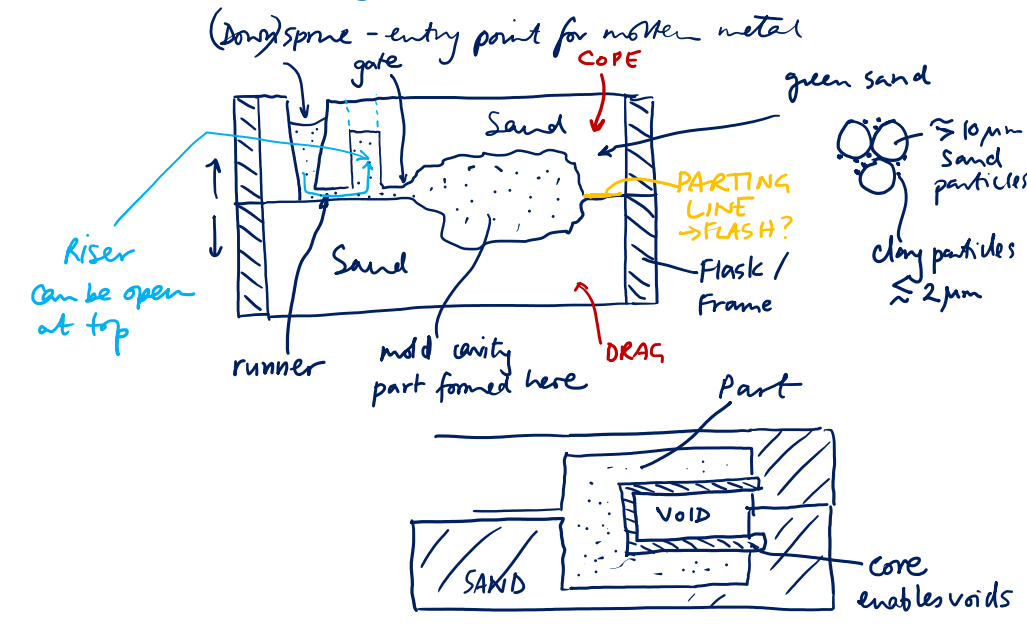 (Down)sprue - entry point for molten metal
gate
COPE
green sand
Sand
≳ 10 μm
sand
particles
PARTING
LINE
→ FLASH?
clay particles
≲ 2 μm
Riser
can be open
at top
Sand
Flask /
Frame
runner
mold cavity
part formed here
DRAG
Part
VOID
SAND
core
enables voids